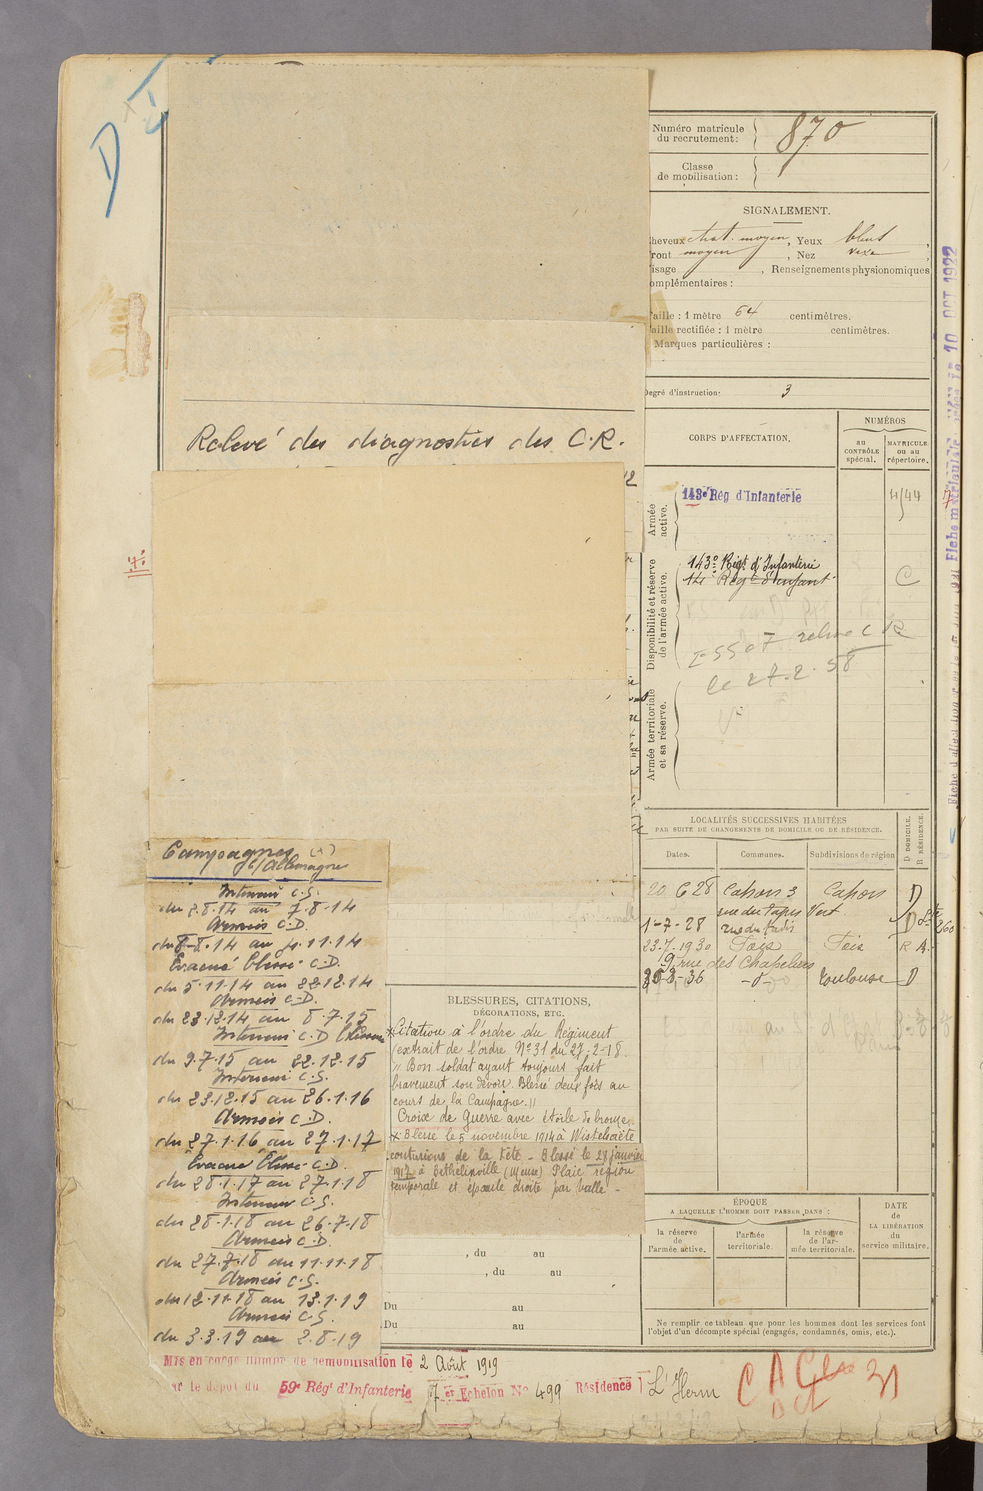 D
Numéro matricule
du recrutement :
870
Classe
de mobilisation :
SIGNALEMENT.
heveux chat. moyen, Yeux bleus,
ront moyen, Nez vexe,
isage , Renseignements physionomiques
omplémentaires :
aille : 1 mètre 64 centimètres.
aille rectifiée : 1 mètre centimètres.
Marques particulières :
egré d'instruction : 3
Relevé des diagnostics des C.R.
CORPS D'AFFECTATION.
NUMÉROS
au
CONTRÔLE
spécial.
MATRICULE
ou au
répertoire.
Armée
active.
143e Rég d'Infanterie
4544
Disponibilité et réserve
de l'armée active.
143e Régt d'Infanterie
14e Régt d'Infant
C
relevé C R
le 27.2.58
Armée territoriale
et sa réserve.
10 OCT 1922
LOCALITÉS SUCCESSIVES HABITÉES
PAR SUITE DE CHANGEMENTS DE DOMICILE OU DE RÉSIDENCE.
Dates.
Communes.
Subdivisions de région
D DOMICILE.
R RÉSIDENCE.
20 6 28 Cahors 3 Cahors D
rue du Tapis Vert
1-7-28 rue du Tapis D
23-7-1930 Foix Foix R
9 rue des Chapeliers
-3-36 -d- Toulouse D
Campagnes (+)
c/ Allemagne
Intérieur C.S.
du 2.8.14 au 7.8.14
Armées C.D.
du 8.8.14 au 4.11.14
Évacué blessé C.D.
du 5.11.14 au 22.12.14
Armées C.D.
du 23.12.14 au 8.7.15
Intérieur C.D blessure
du 9.7.15 au 22.12.15
Intérieur C.S.
du 23.12.15 au 26.1.16
Armées C.D.
du 27.1.16 au 27.1.17
Évacué blessé C.D.
du 28.1.17 au 27.1.18
Intérieur C.S.
du 28.1.18 au 26.7.18
Armées C.D.
du 27.7.18 au 11.11.18
Armées C.S.
du 12.11.18 au 13.1.19
Armées C.S.
du 3.3.19 au 2.8.19
BLESSURES, CITATIONS,
DÉCORATIONS, ETC.
Citation à l'ordre du Régiment
(extrait de l'ordre No 31 du 27-2-18
" Bon soldat ayant toujours fait
bravement son devoir. Blessé deux fois au
cours de la Campagne. "
Croix de Guerre avec étoile de bronze
x Blessé le 5 novembre 1914 à Wistchaëte
contusions de la tête - Blessé le 28 janvier
1917 à Bethelinville (Meuse) Plaie région
temporale et épaule droite par balle -
, du au
, du au
Du au
Du au
ÉPOQUE
A LAQUELLE L'HOMME DOIT PASSER DANS :
la réserve
de
l'armée active.
l'armée
territoriale.
la réserve
de l'ar-
mée territoriale.
DATE
de
LA LIBÉRATION
du
service militaire.
Ne remplir ce tableau que pour les hommes dont les services font
l'objet d'un décompte spécial (engagés, condamnés, omis, etc.).
Mis en congé illimité de démobilisation le 2 Août 1919
ar le dépôt du 59e Régt d'Infanterie 7 e Echelon No 499 Résidence L'Herm